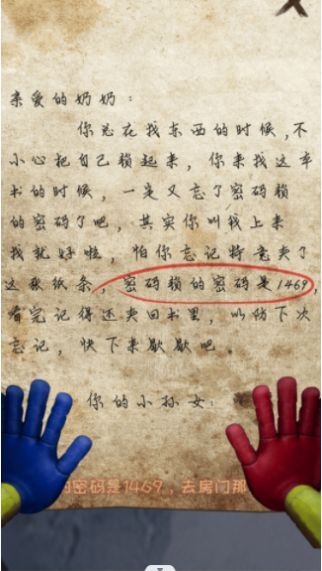 亲爱的奶奶：
你总在找东西的时候,不
小心把自己锁起来，你来找这本
书的时候，一定又忘了密码锁
的密码了吧，其实你叫我上来
找就好啦，怕你忘记特意夹了
这张纸条，密码锁的密码是1469，
看完记得还夹回书里，以防下次
忘记，快下来歇歇吧。
你的小孙女：
的密码是1469，去房门那